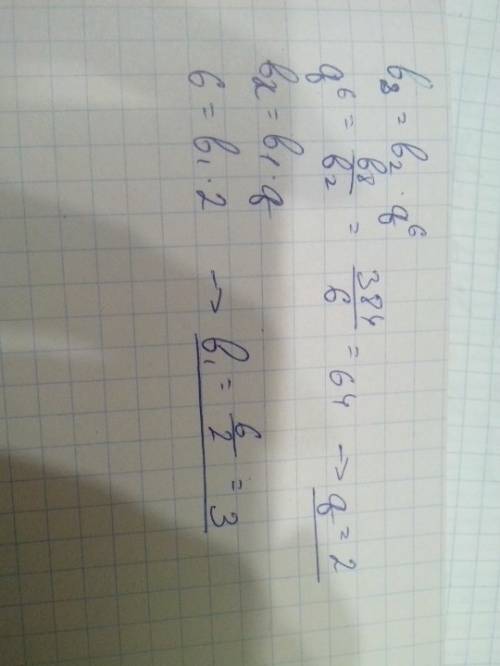 b₈ = b₂ · q⁶
q⁶ = b₈/b₂ = 384/6 = 64 → q = 2
b₂ = b₁ · q
6 = b₁ · 2 → b₁ = 6/2 = 3